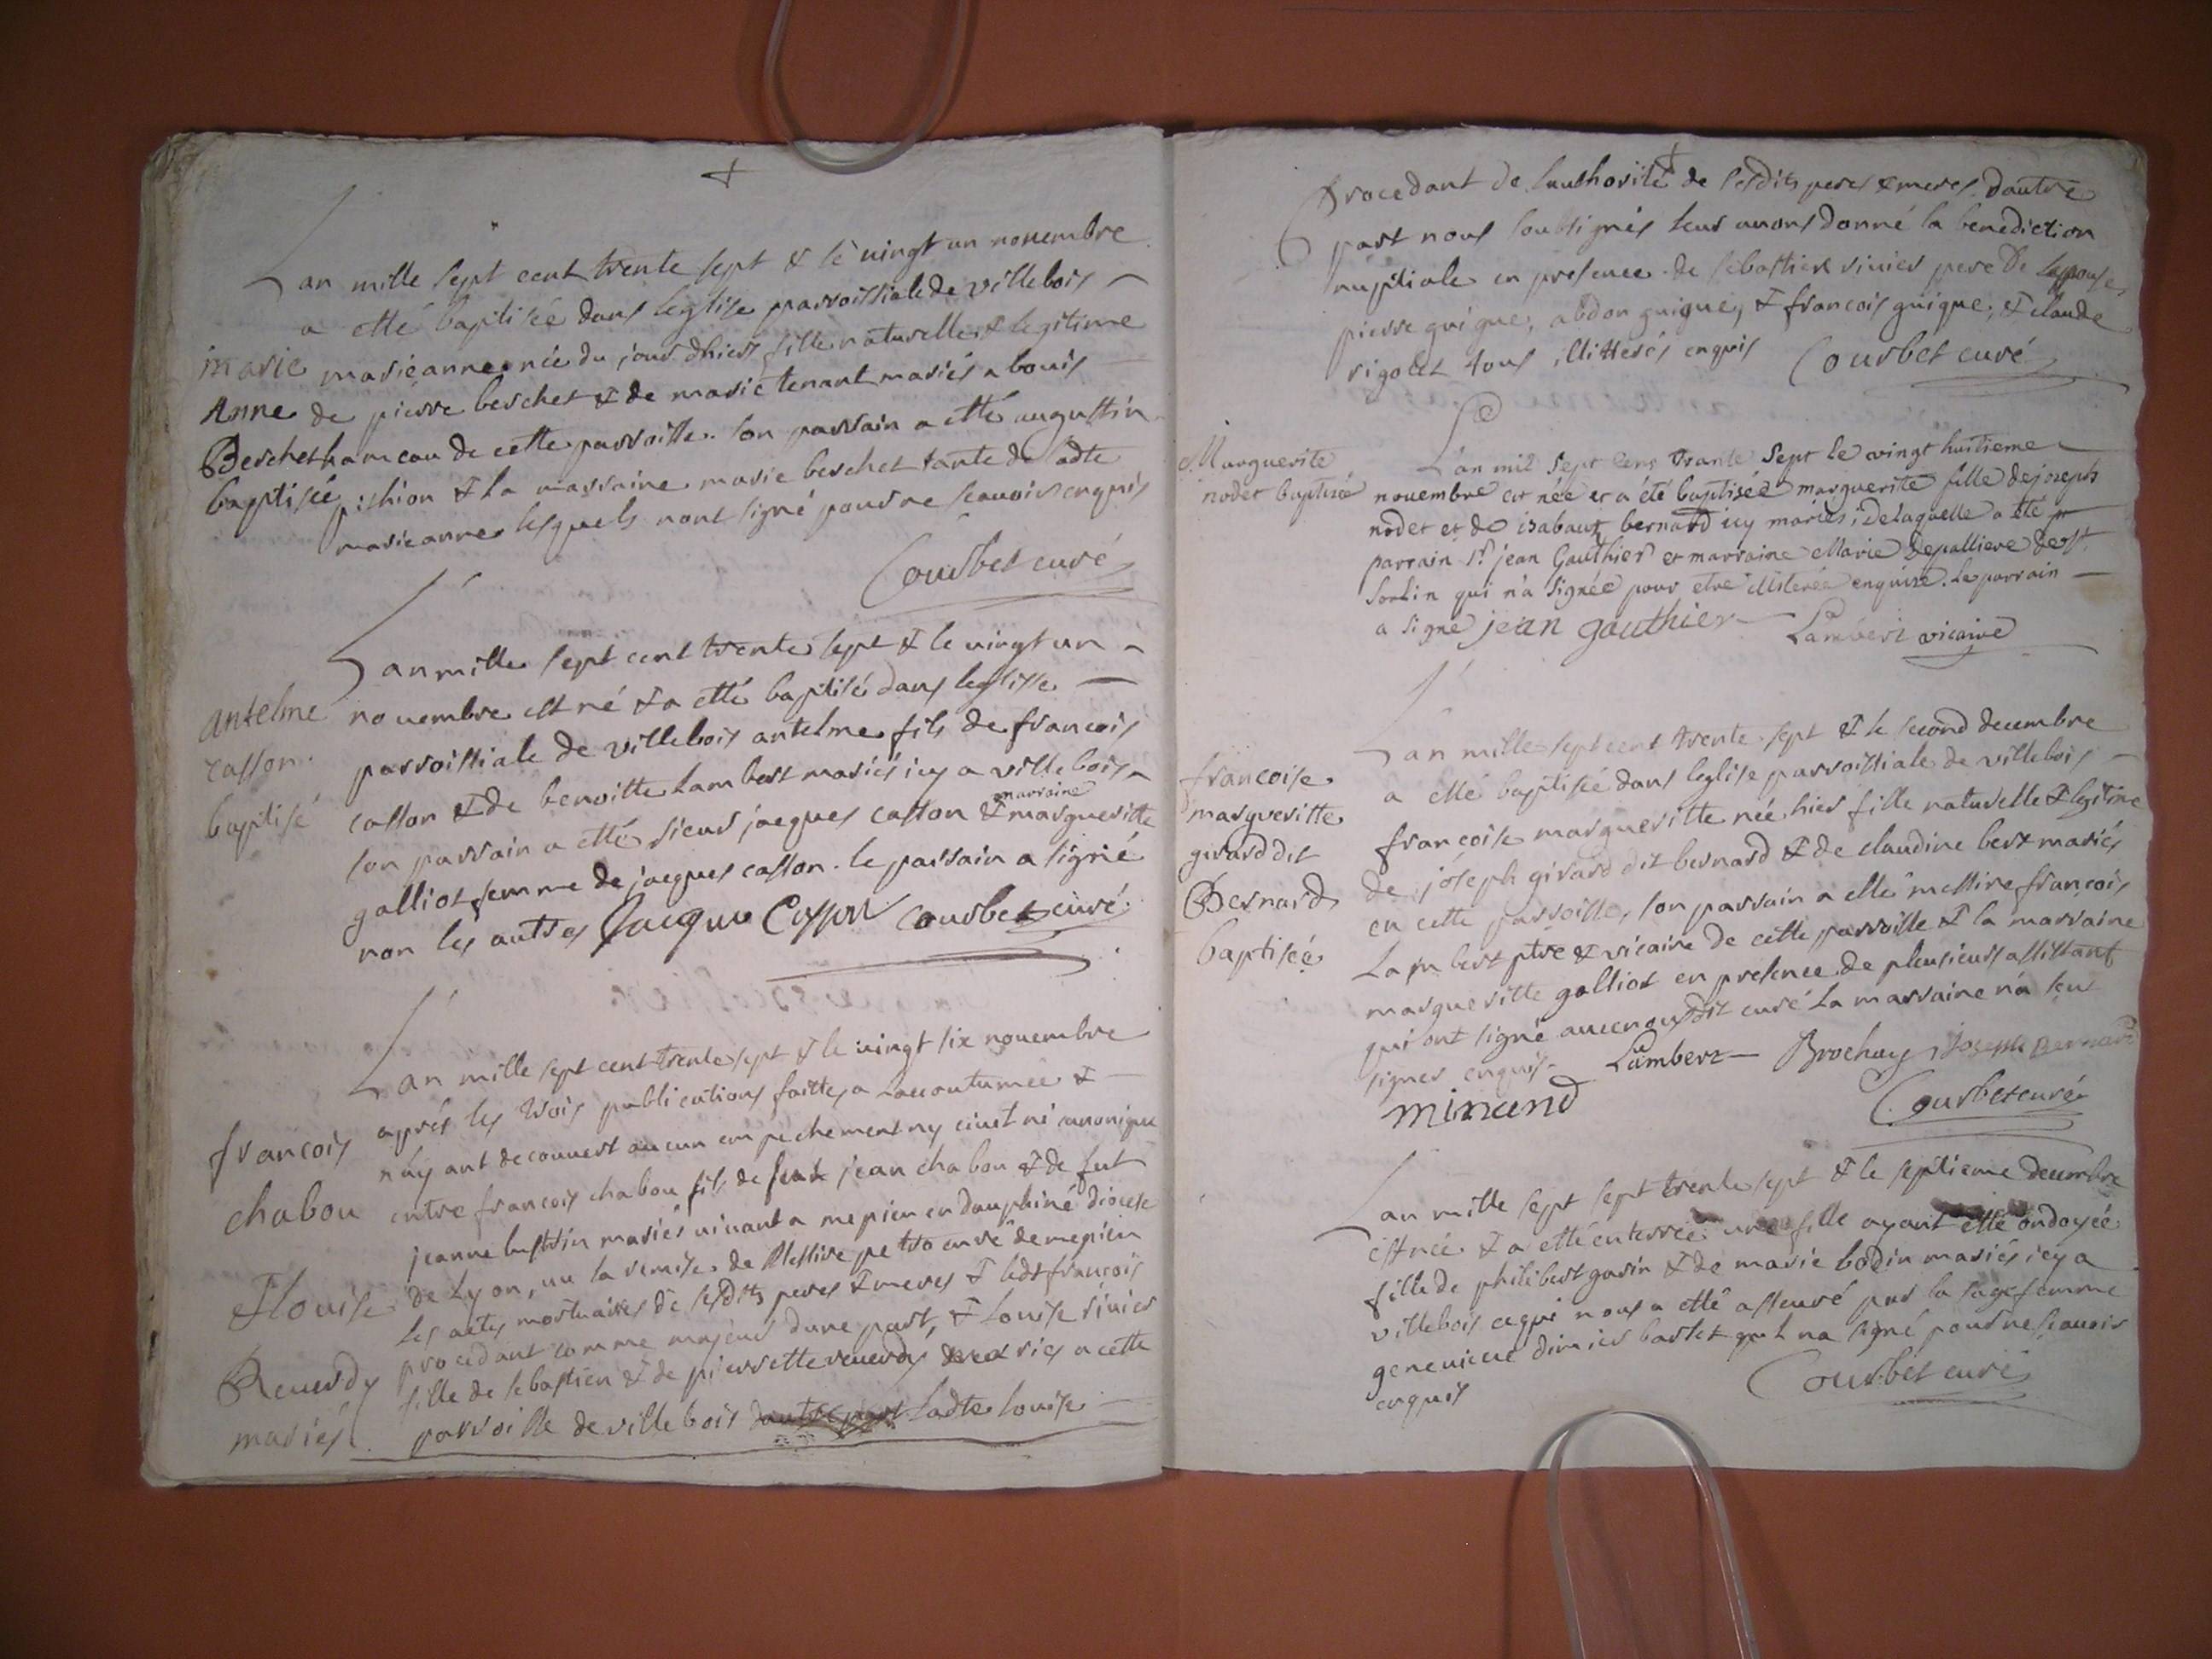 Lan mille sept cent trente sept & le vingt un nouembre
a etté baptisée dans leglise parroissiale de villebois
marie
marieanne née du jour dhier fille naturelle & legitime
Anne
de pierre berchet & de marie tenant mariés a bouis
Berchet
hameau de cette parroisse. son parrain a etté augustin
baptisée
pichion & la marraine marie berchet tante de ladte
marieanne lesquels nont signé pour ne scauoir enquis
Courbet curé
Lan mille sept cent trente sept & le vingt un
antelme
nouembre est né & a etté baptisé dans leglisse
casson.
parroissiale de villebois antelme fils de francois
baptisé
casson & de benoitte Lambert mariés icy a villebois
marraine
son parrain a etté sieur jacques casson & margueritte
galliot femme de jacques casson. le parrain a signé
non les autres Jacque Casson Courbet curé.
Lan mille sept cent trente sept & le vingt six nouembre
après les trois publications faittes a Laccoutumee &
francois
n'ayant decouuert aucun empechement ny ciuil ni canonique
chabou
entre francois chabou fils de feut jean chabou & de feut
jeanne mariés viuant a mepieu en dauphiné diocese
& louise
de Lyon, uu la remise de Messire petro curé de mepieu
les actes mortuaires de sesdits peres & meres & ledt francois
procedant comme majeur dune part, & Louise siuier
Reuerdy
fille de sebastien & de pierrette reuerdy mariés a cette
mariés.
parroisse de villebois dautre part ladte louise
Procedant de Lauthorité de sesdits peres & meres dautre
part nous soubsignés leur auons donné la benediction
nuptiale en presence de sebastien siuier pere de lepouse,
pierre guigue, abdon guigue, & francois guigue, & claude
rigolet tous illitterés enquis Courbet curé
Marguerite
nodet baptisée
L'an mil sept cens trante sept le vingt huitieme
nouembre est née et a été baptisée marguerite fille de joseph
nodet et de isabaux bernard icy mariés; de laquelle a été
parrain Sr. jean Gauthier et marraine Marie depalliere de St.
Sorlin qui n'a signée pour etre illiterée enquise. Le parrain
a signé jean gauthier Lambert vicaire
Lan mille sept cent trente sept & le second decembre
francoise
a etté baptisée dans leglise parroissiale de villebois
margueritte
francoise margueritte née hier fille naturelle & legitime
girard dit
de joseph girard dit bernard & de claudine bert mariés
Bernard
en cette parroisse, son parrain a etté messire francois
baptisée
Lambert ptre & vicaire de cette parroisse & la marraine
margueritte galliot en presence de plusieurs assistant
qui ont signé auec nousdit curé La marraine n'a sceu
signer enquis. Lambert Brochay Joseph Bernard
minand Courbet curé
Lan mille sept sept trente sept & le septieme decembre
est née & a etté enterrée une fille ayant etté ondoyée
fille de philibert garin & de marie bodin mariés icy a
villebois ce qui nous a etté asseuré par la sage femme
geneuieue diuier barlet qui na signé pour ne scauoir
enquis Courbet curé